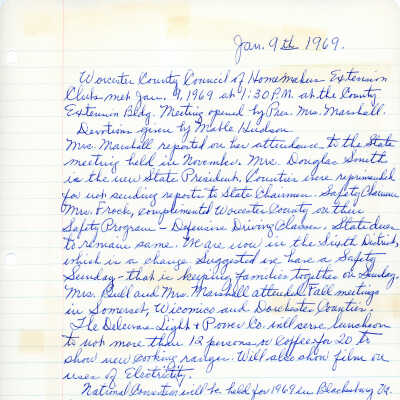 Jan. 9th 1969.
Worcester County Council of Homemakers Extension
Clubs met Jan. 9, 1969 at 1:30 P.M. at the County
Extension Bldg. Meeting opened by Pres. Mrs. Marshall.
Devotions given by Mable Hudson.
Mrs. Marshall reported on her attendance to the State
meeting held in November. Mrs. Douglas Smith
is the new State President. Counties were reprimanded
for not sending reports to State Chairmen. Safety Chairman
Mrs. Frock, complimented Worcester County on their
Safety Program - Defensive Driving Classes. State dues
to remain same. We are now in the Sixth District,
which is a change. Suggested we have a Safety
Sunday - that is keeping families together on Sunday.
Mrs. Bull and Mrs. Marshall attended Fall meetings
in Somerset, Wicomico and Dorchester Counties.
The Delmarva Light & Power Co. will serve luncheon
to not more than 12 persons or Coffee for 20 to
show new cooking ranges. Will also show film on
uses of Electricity.
National Convention will be held for 1969 in Blacksburg Va.